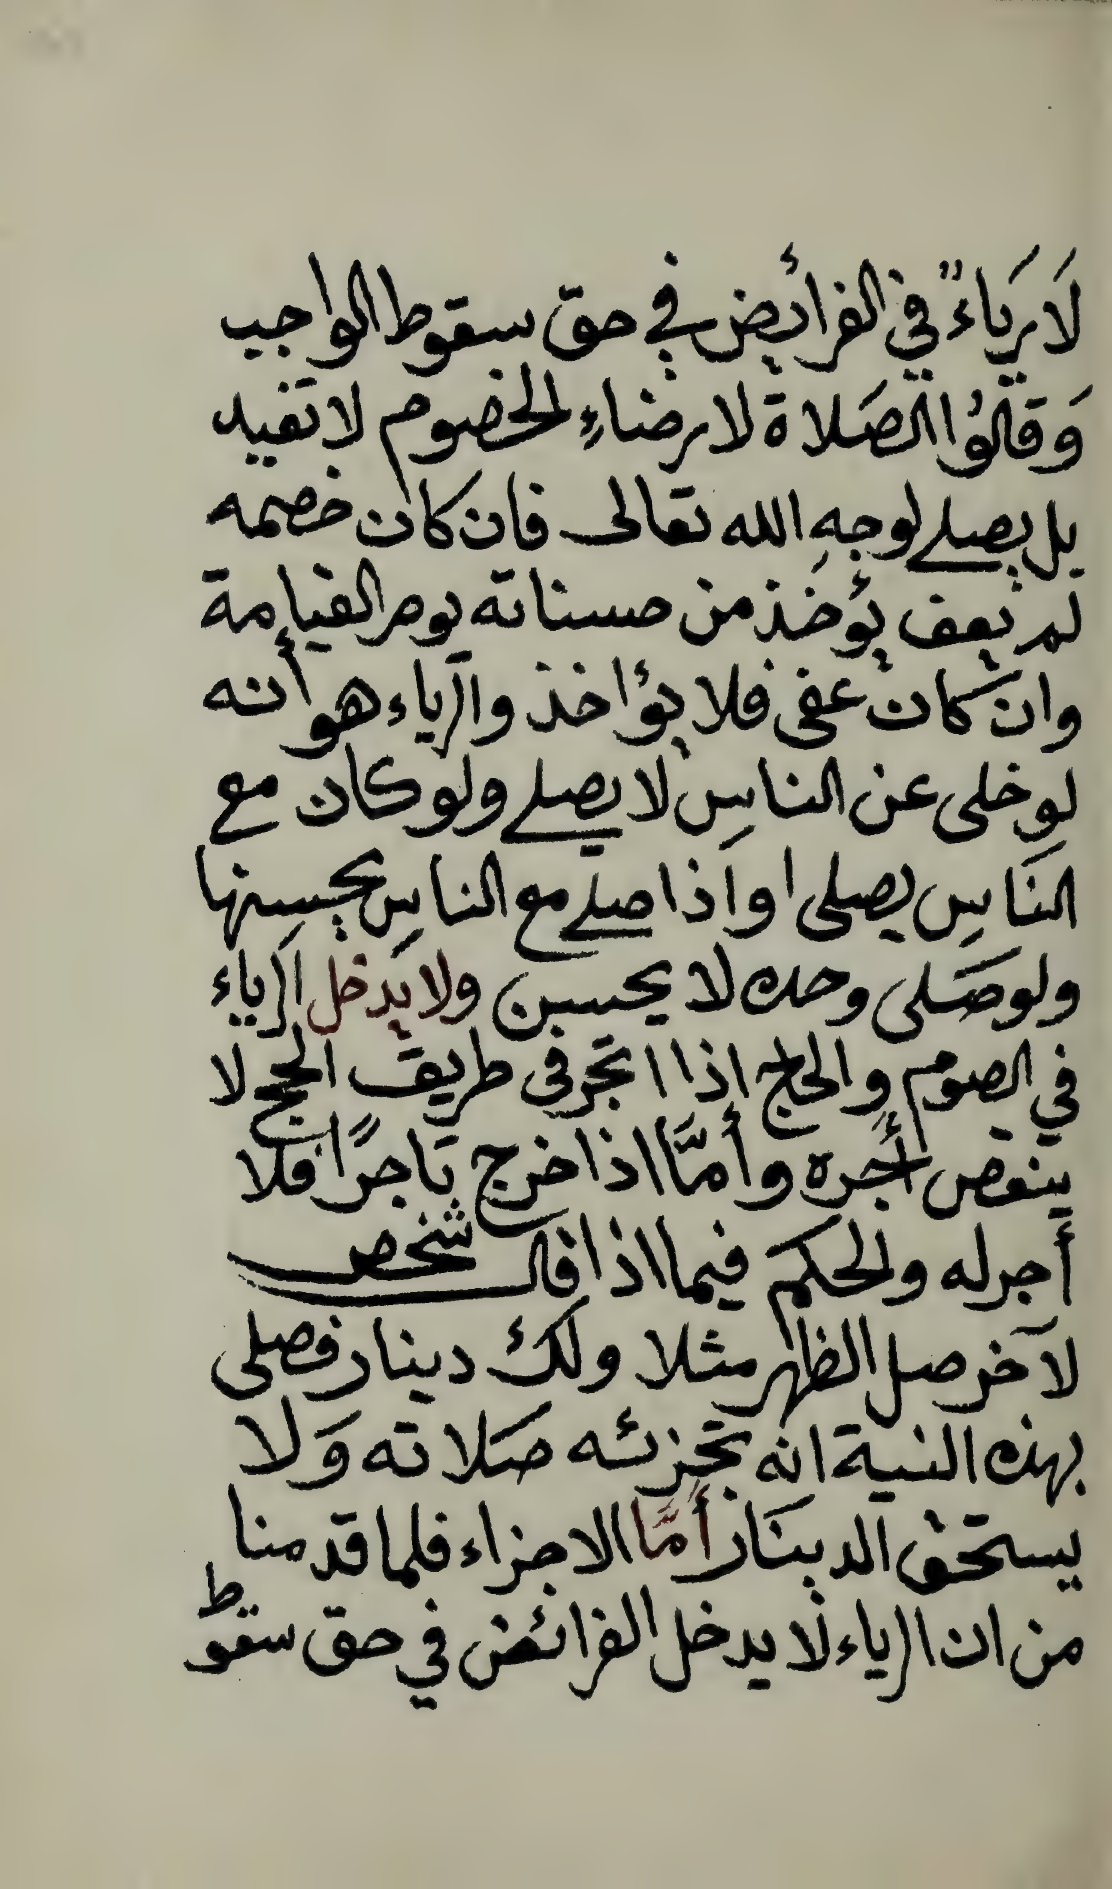 لَا رِيَاءً في الفرائض في حق سقوط الواجب
وَقالُوا الصَلاة لارضاءِ الخصوم لا تفيد
بل يصلي لوجهِ الله تعالى فان كان خصمه
لم يعف يؤخذ من حسناته يوم القيامة
وان كان عفى فلا يؤاخذ والرياء هو أنه
لو خلى عن الناسِ لا يصلي ولو كان مع
الناسِ يصلى او اذا صلي مع الناس يحسنها
ولو صَلى وحده لا يحسن ولا يدخل الرياء
في الصوم والحاج اذا اتجر فى طريق الحج لا
ينقص أجره وأمَّا اذا خرج تاجرًا فلا
أجر له والحكم فيما اذا قال شخص
لآخر صل الظهر مثلا ولك دينار فصلى
بهذه النية انه تجزئه صَلاته وَلا
يستحق الدينَار أمَّا الاجزاء فلما قدمنا
من ان الرياء لا يدخل الفرائض في حق سقوط